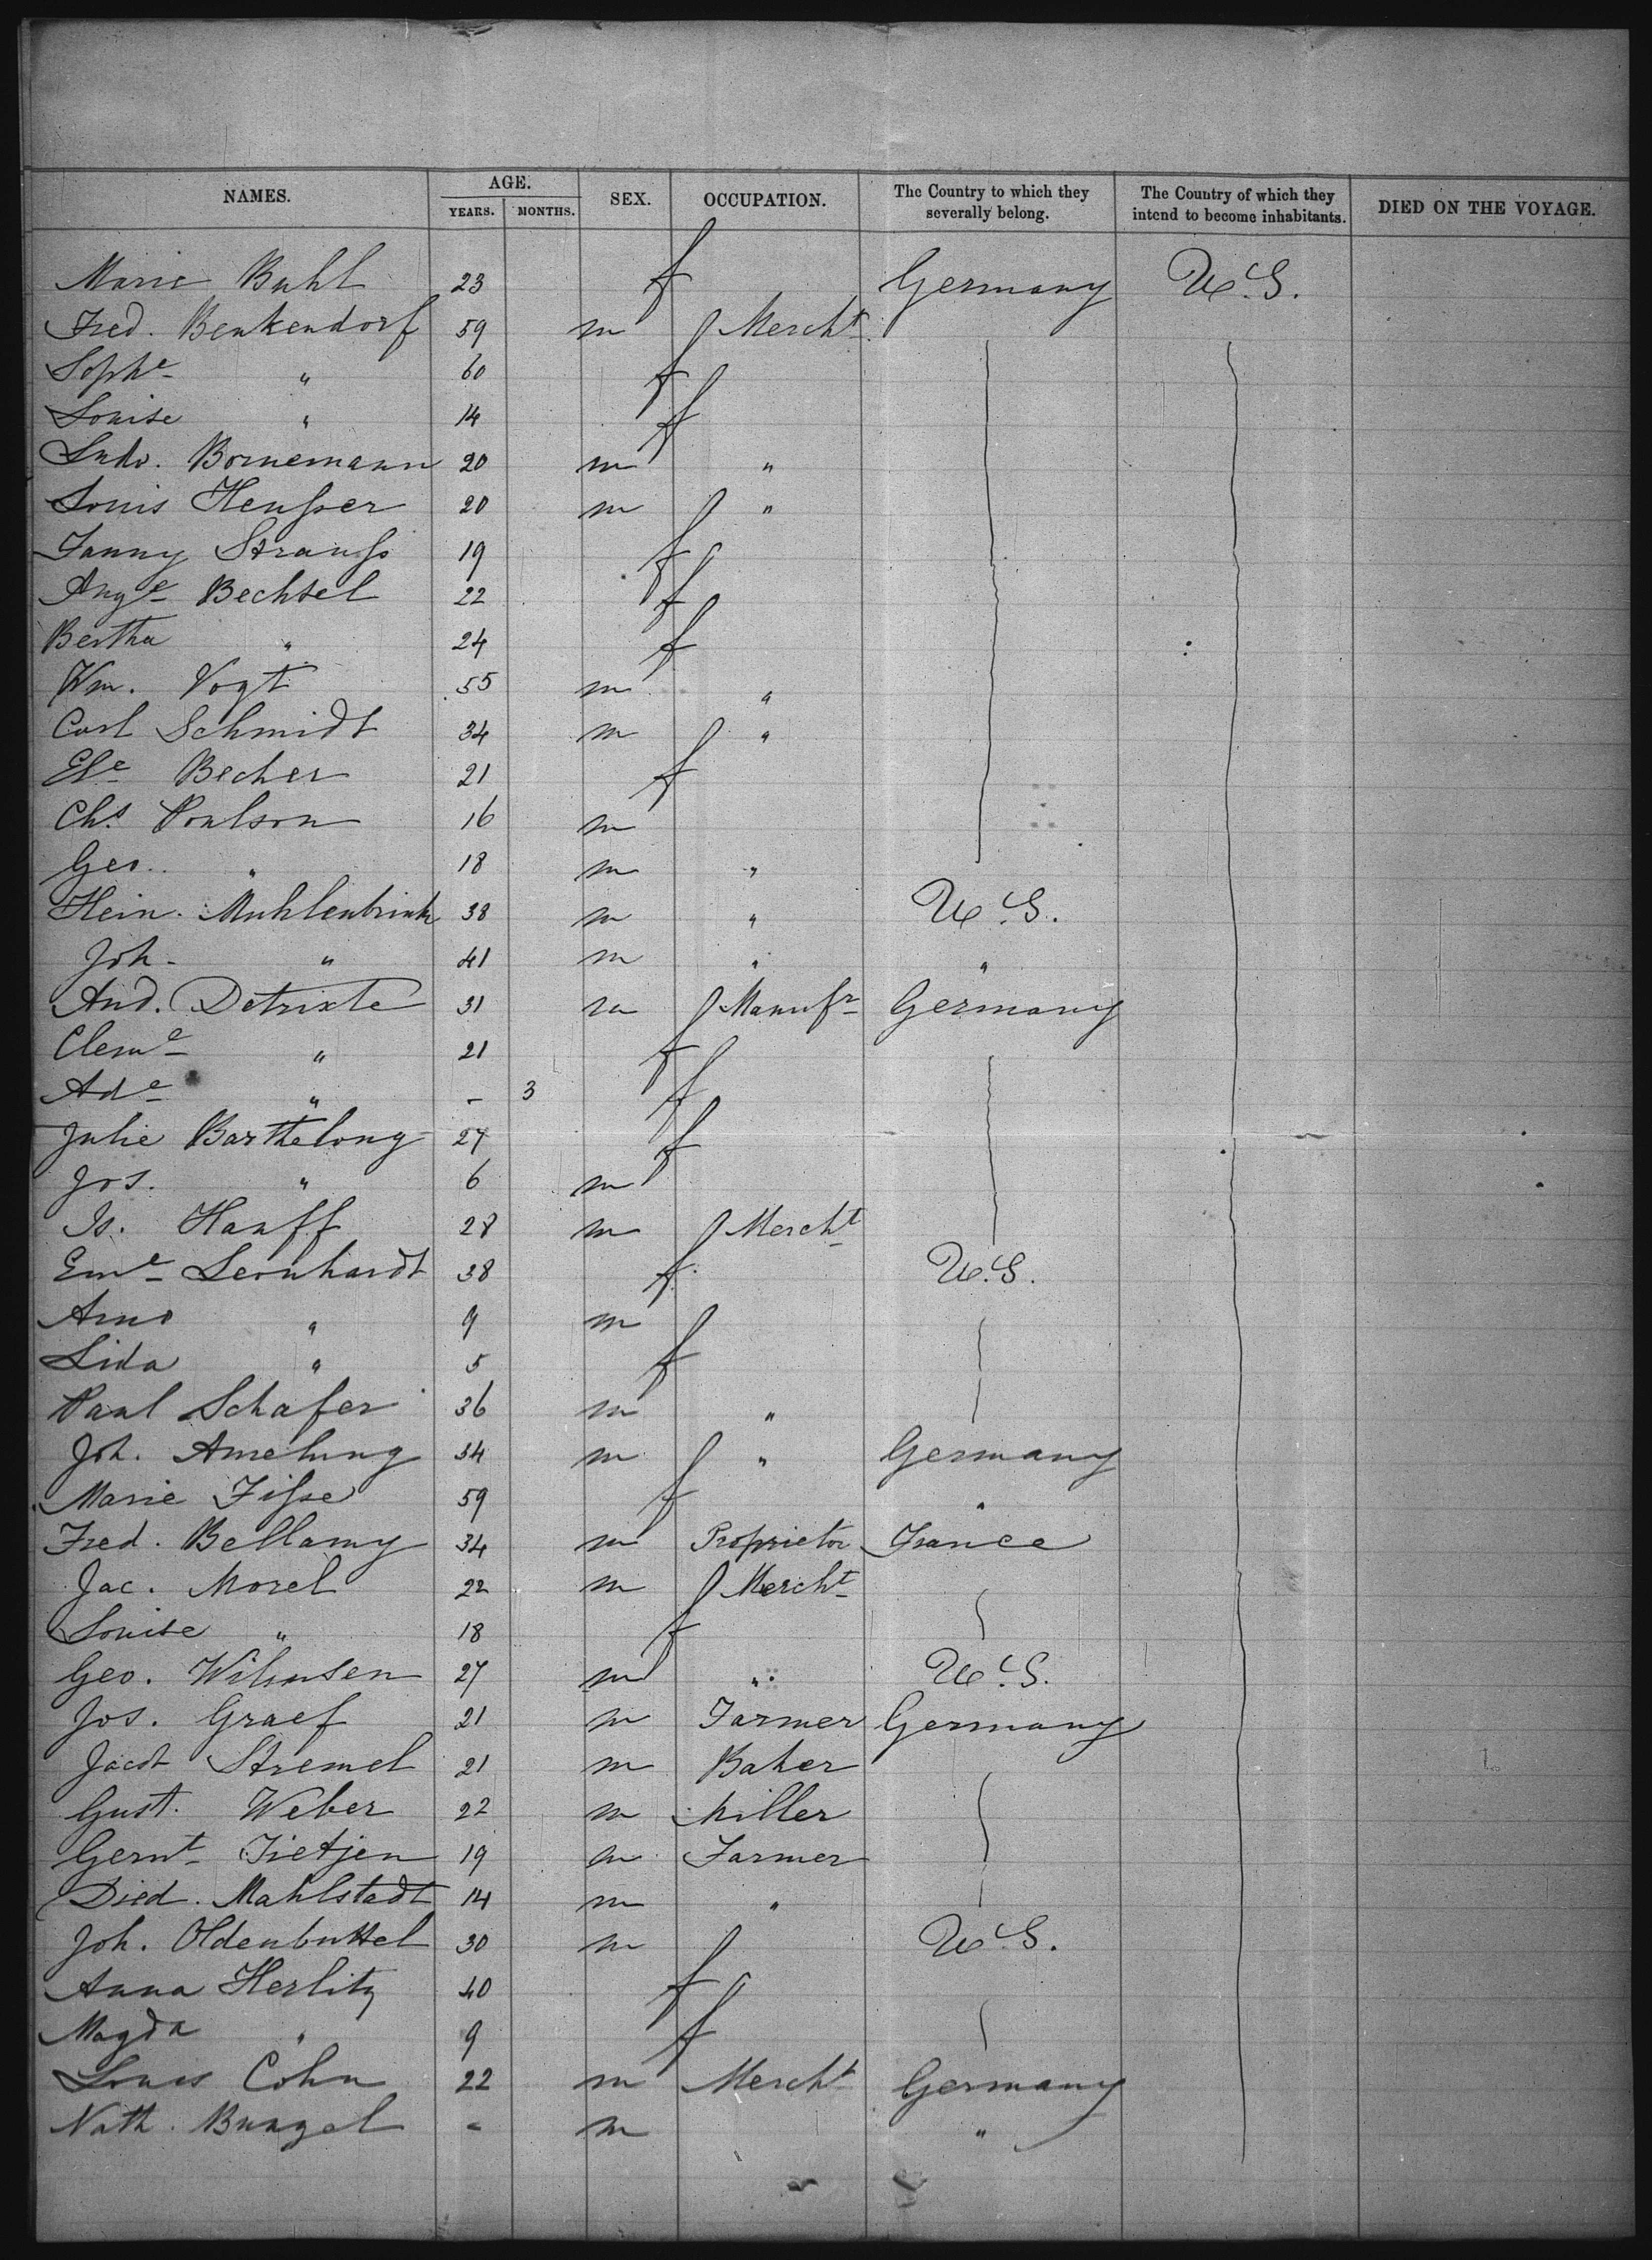 NAMES. AGE. SEX. OCCUPATION. The Country to which they severally belong. The Country of which they intend to become inhabitants. DIED ON THE VOYAGE.
YEARS. MONTHS.
Marie Buhl 23 f Germany U.S.
Fred. Benkendorf 59 m Mercht
Sophe " 60 f
Louise " 14 f
Ludw. Bornemann 20 m "
Louis Heußer 20 m "
Fanny Strauß 19 f
Auge Bechtel 22 f
Bertha " 24 f
Wm. Vogt 55 m "
Carl Schmidt 34 m "
Ele Becher 21 f
Chs. Poulson 16 m
Geo. " 18 m "
Hein. Muhlenbrink 38 m " U.S.
Joh. " 41 m " "
And. Detrixte 31 m Manufr Germany
Cleme " 21 f
Ade " - 3 f
Julie Barthelong 27 f
Jos. " 6 m
Is. Hanff 28 m Mercht
Eme Leonhardt 38 f U.S.
Arno " 9 m
Lida " 5 f
Paul Schafer 36 m "
Joh. Amelung 34 m " Germany
Marie Fiße 59 f "
Fred. Bellamy 34 m Proprietor France
Jac. Morel 22 m Mercht
Louise " 18 f
Geo. Wilmsen 27 m " U.S.
Jos. Graef 21 m Farmer Germany
Jacob Stremel 21 m Baker
Gust. Weber 22 m Miller
Gernt Tietjen 19 m Farmer
Died. Mahlstadt 14 m "
Joh. Oldenbuttel 30 m U.S.
Anna Herlitz 40 f
Magda " 9 f
Louis Cohn 22 m Mercht Germany
Nath. Bunzel - m "